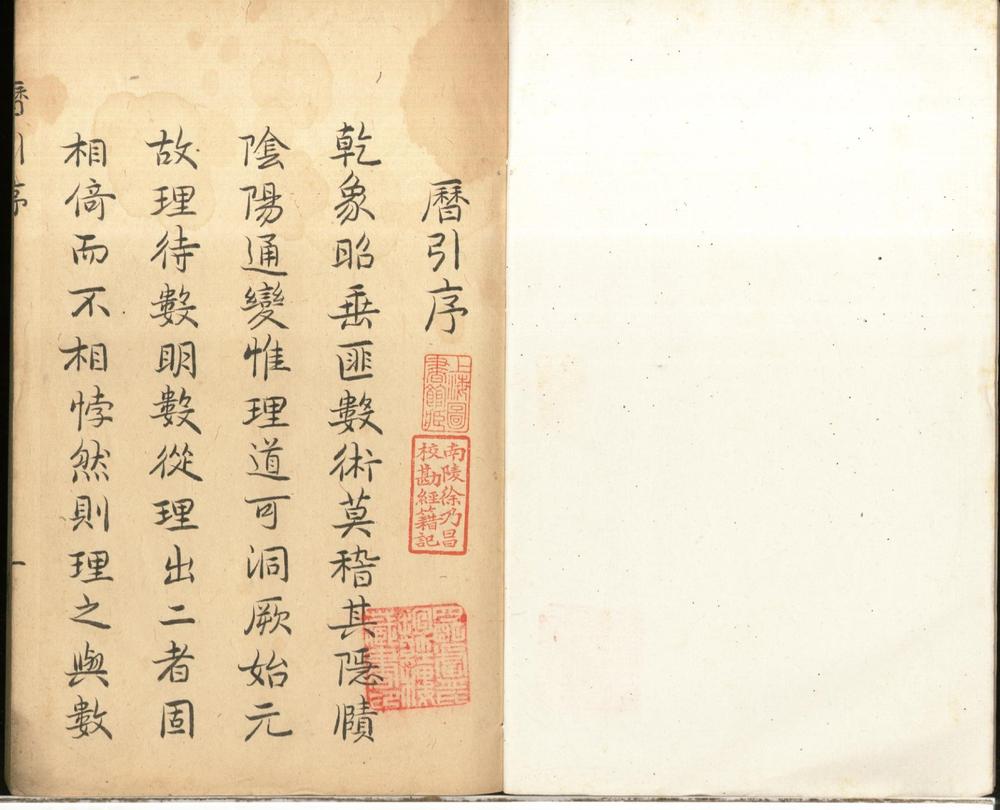 曆引序
上海圖
書館藏
南陵徐乃昌
校勘經籍記
乾象昭垂匪數術莫稽其隱賾
陰陽通變惟理道可洞厥始元
故理待數明數從理出二者固
相倚而不相悖然則理之與數
曆引序
一